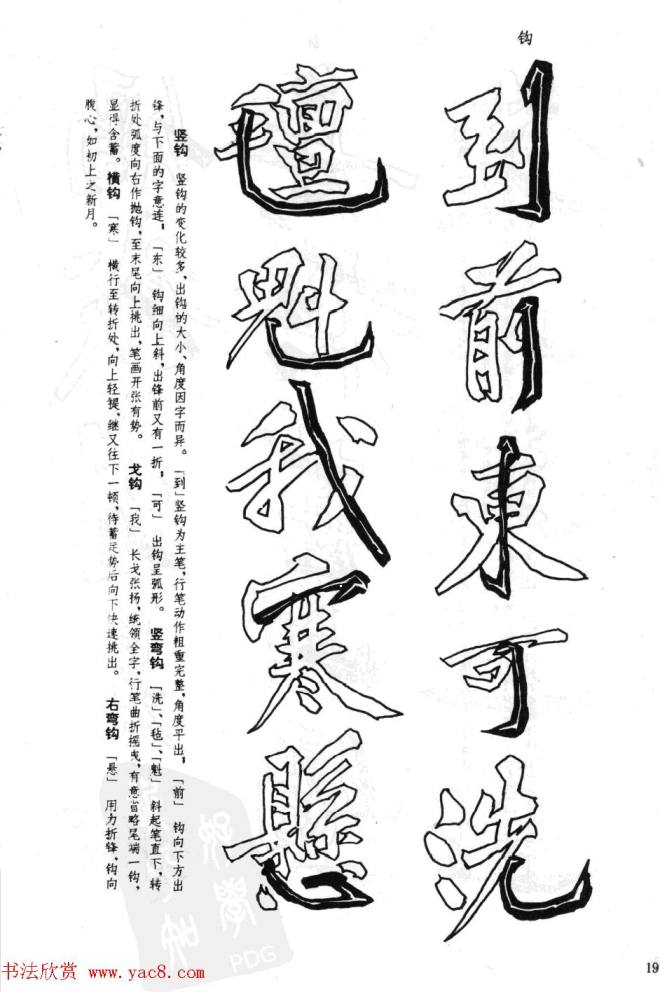 钩
到前東可洗
氊魁我寒懸
竖钩 竖钩的变化较多，出钩的大小、角度因字而异。「到」竖钩为主笔，行笔动作粗重完整，角度平出，「前」钩向下方出
锋，与下面的字意连；「东」钩细向上斜，出锋前又有一折；「可」出钩呈弧形。 竖弯钩 「洗」、「毡」、「魁」斜起笔直下，转
折处弧度向右作抛钩，至末尾向上挑出，笔画开张有势。 戈钩 「我」长戈张扬，统领全字，行笔曲折摇曳，有意省略尾端一钩，
显得含蓄。 横钩 「寒」横行至转折处，向上轻提，继又往下一顿，待蓄足势后向下快速挑出。 右弯钩 「悬」用力折锋，钩向
腹心，如初上之新月。
好学
知
PDG
19
书法欣赏 www.yac8.com